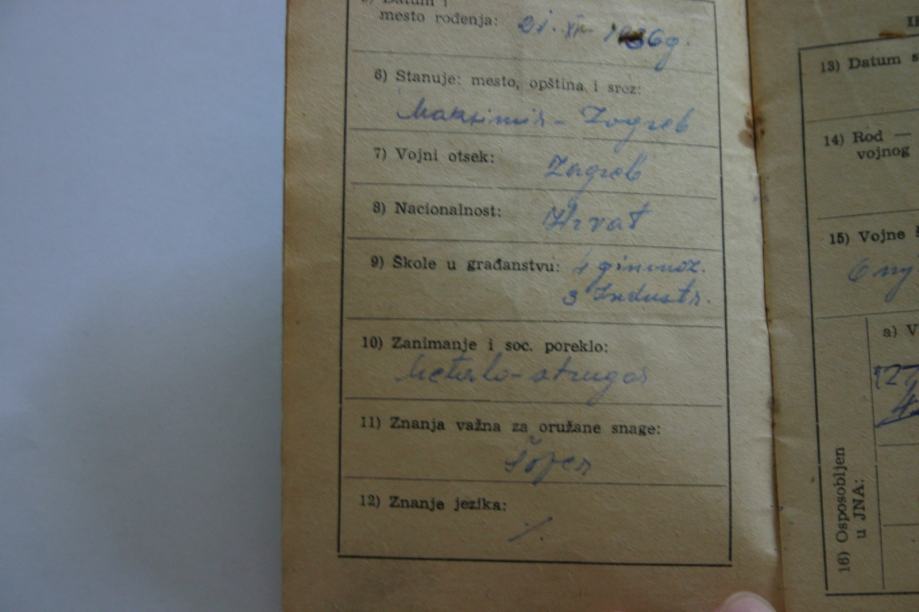 5) Datum i
mesto rođenja: 21. XII 1936g.
6) Stanuje: mesto, opština i srez:
Maksimir - Zagreb
7) Vojni otsek: Zagreb
8) Nacionalnost: Hrvat
9) Škole u građanstvu: 4 gimnaz.
3 Industr.
10) Zanimanje i soc. poreklo:
Metalo-strugar
11) Znanja važna za oružane snage:
Šofer
12) Znanje jezika:
13) Datum
14) Rod —
vojnog
15) Vojne
a) V
16) Osposobljen
u JNA: